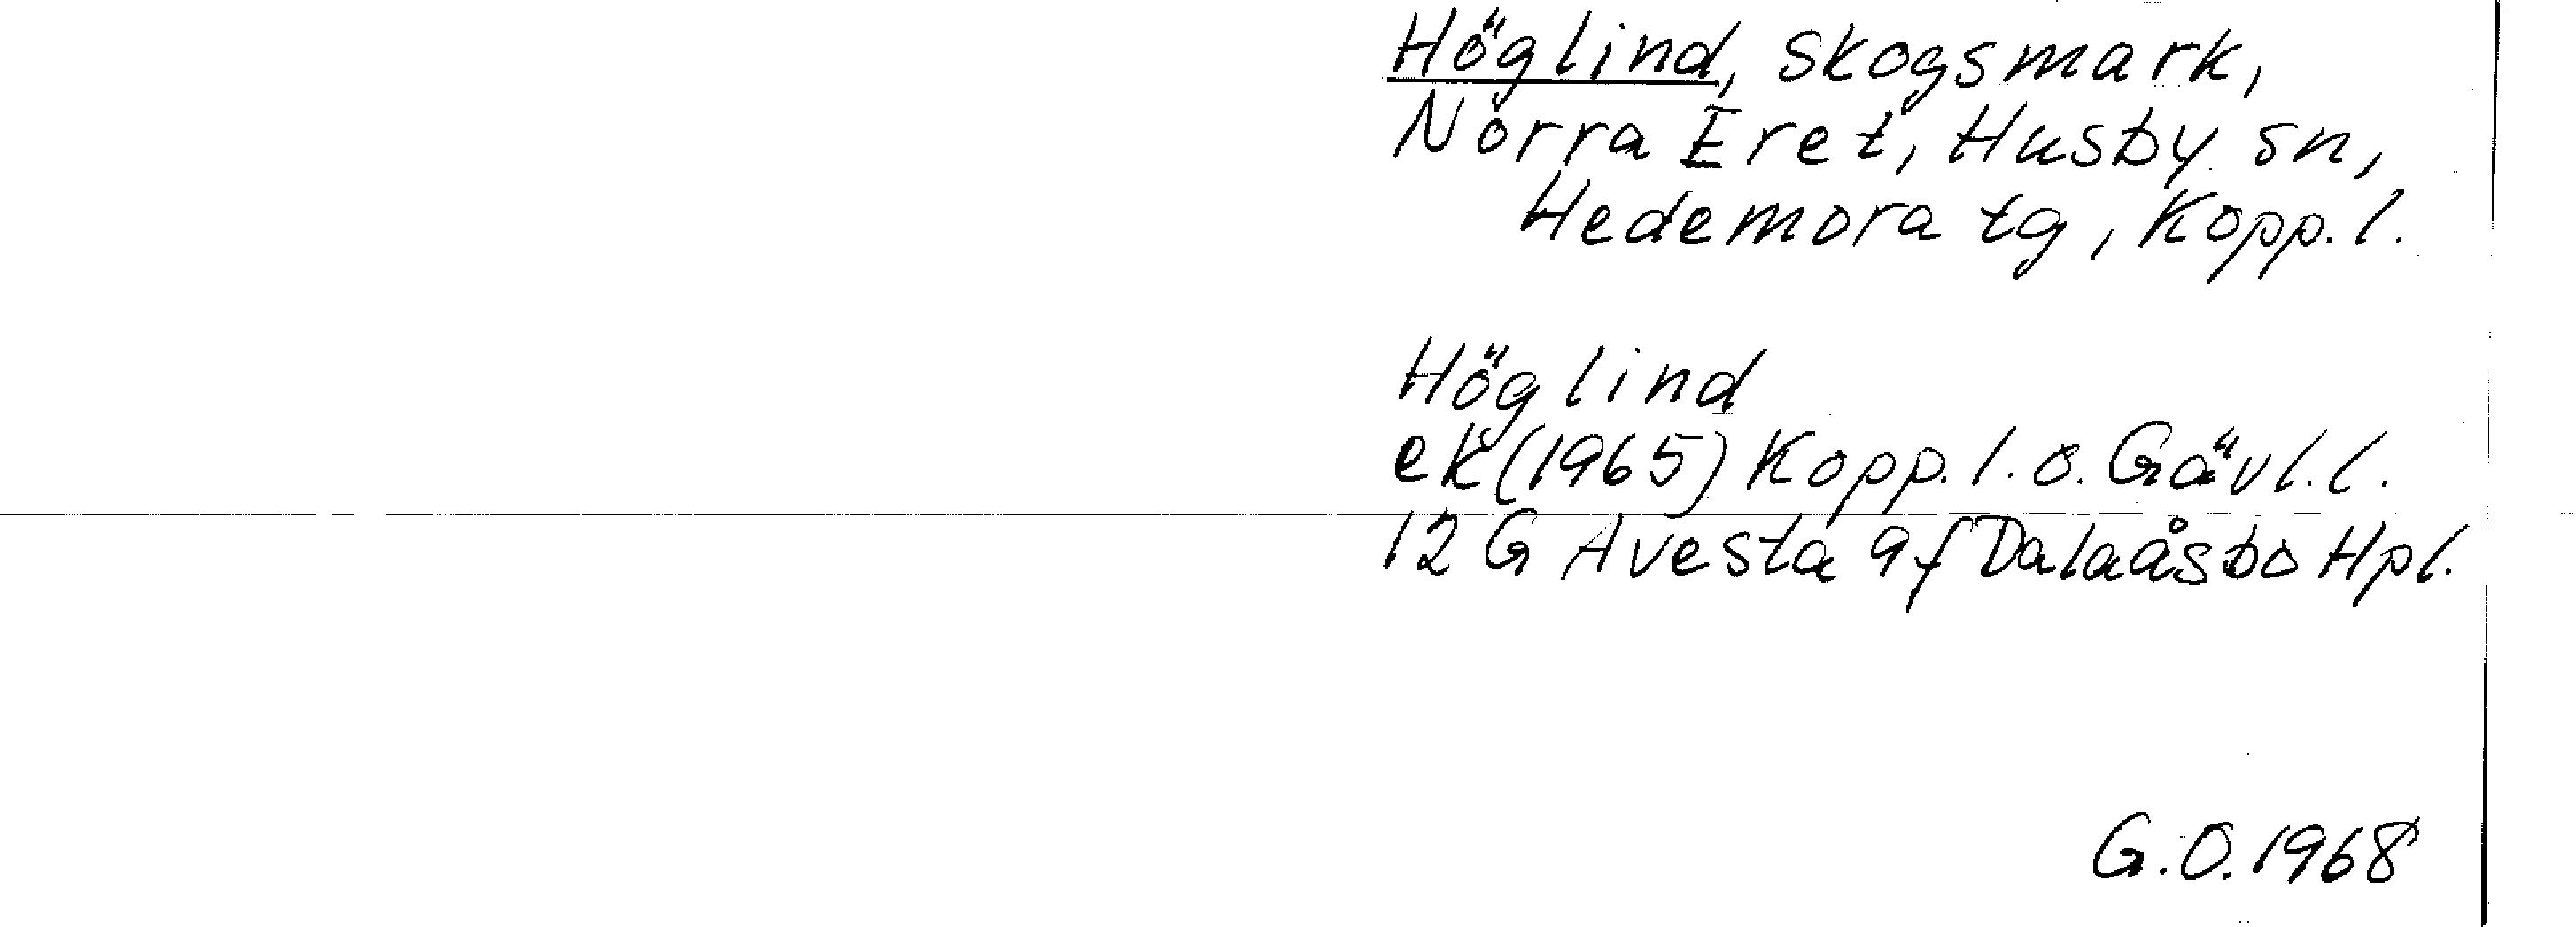 Höglind, skogsmark,
Norra Eret, Husby sn,
Hedemora tg, Kopp. l.
Höglind
ek (1965) Kopp. l. o. Gävl. l.
12 G Avesta 9f Dalaåsbo Hpl.
G.O. 1968